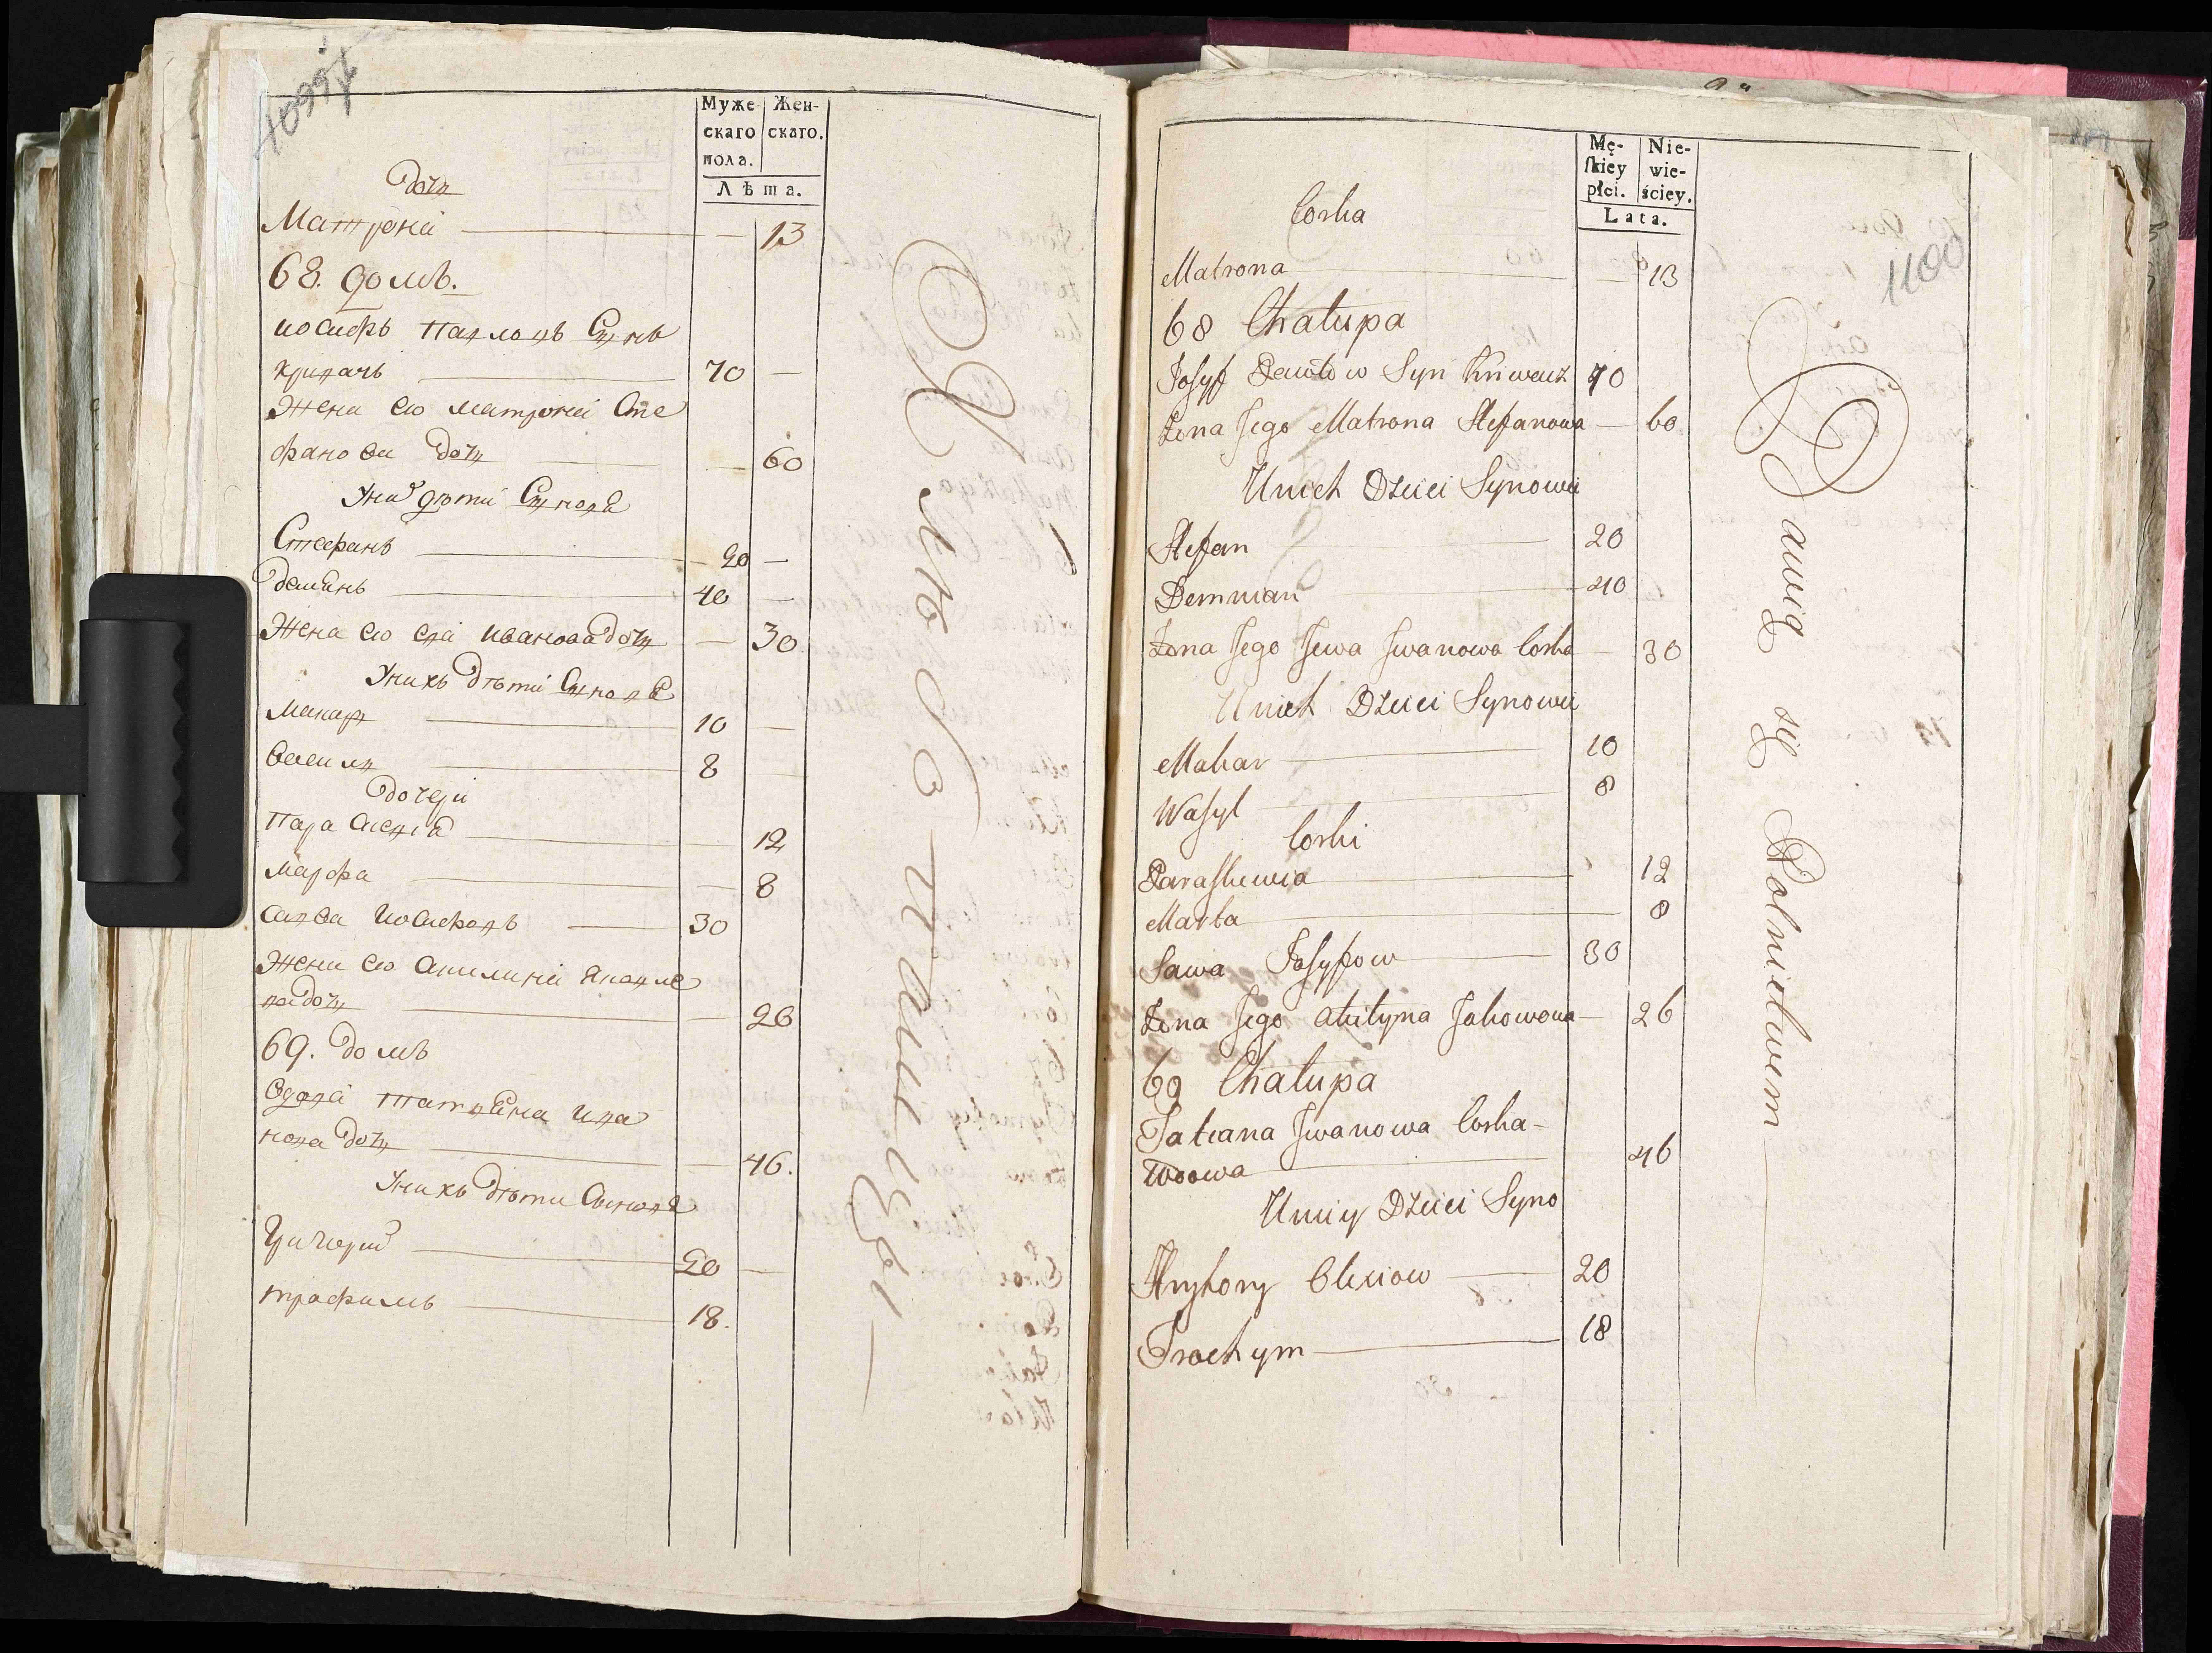 Муже- Жен-
скаго скаго.
пола.
Лѣта.
дочь
Матрона — 13
68. домъ.
иосифъ Павловъ Сынъ
кривачъ 70 —
Жена ево матрона Сте
фанова дочь — 60
Уних дѣти Сынова
Стефанъ 20 —
демиянъ 40 —
Жена ево ева иванова дочь — 30
Унихъ дѣти Сынова
Макар 10 —
Василь 8 —
дочери
Параскевиа — 12
марфа — 8
савва иосифовъ 30
Жена ево акилина яковле
ва дочь — 26
69. домъ
вдова татияна ива
нова дочь — 46.
Унихъ дѣти Сынова
Григорий 20 —
трофимъ 18.
Хлѣбопашцы
Mę- Nie-
ſkiey wie-
płci. ściey.
Lata.
1100
Corka
Matrona — 13
68 Chałupa
Josyf Pawłow Syn Kriwacz 70
Żona Jego Matrona Stefanowa — 60
Unich Dzieci Synowie
Stefan 20
Demmian 40
Żona Jego Jewa Jwanowa Corka — 30
Unich Dzieci Synowie
Makar 10
Wasyl 8
Corki
Paraskewia 12
Marta 8
Sawa Josyfow 30
Żona Jego Akulyna Jakowowa — 26
69 Chałupa
Tatiana Jwanowa Corka
Wdowa 46
Uniey Dzieci Syno
Hryhory Olexiow 20
Trochym 18
Bawią się Rolnictwem